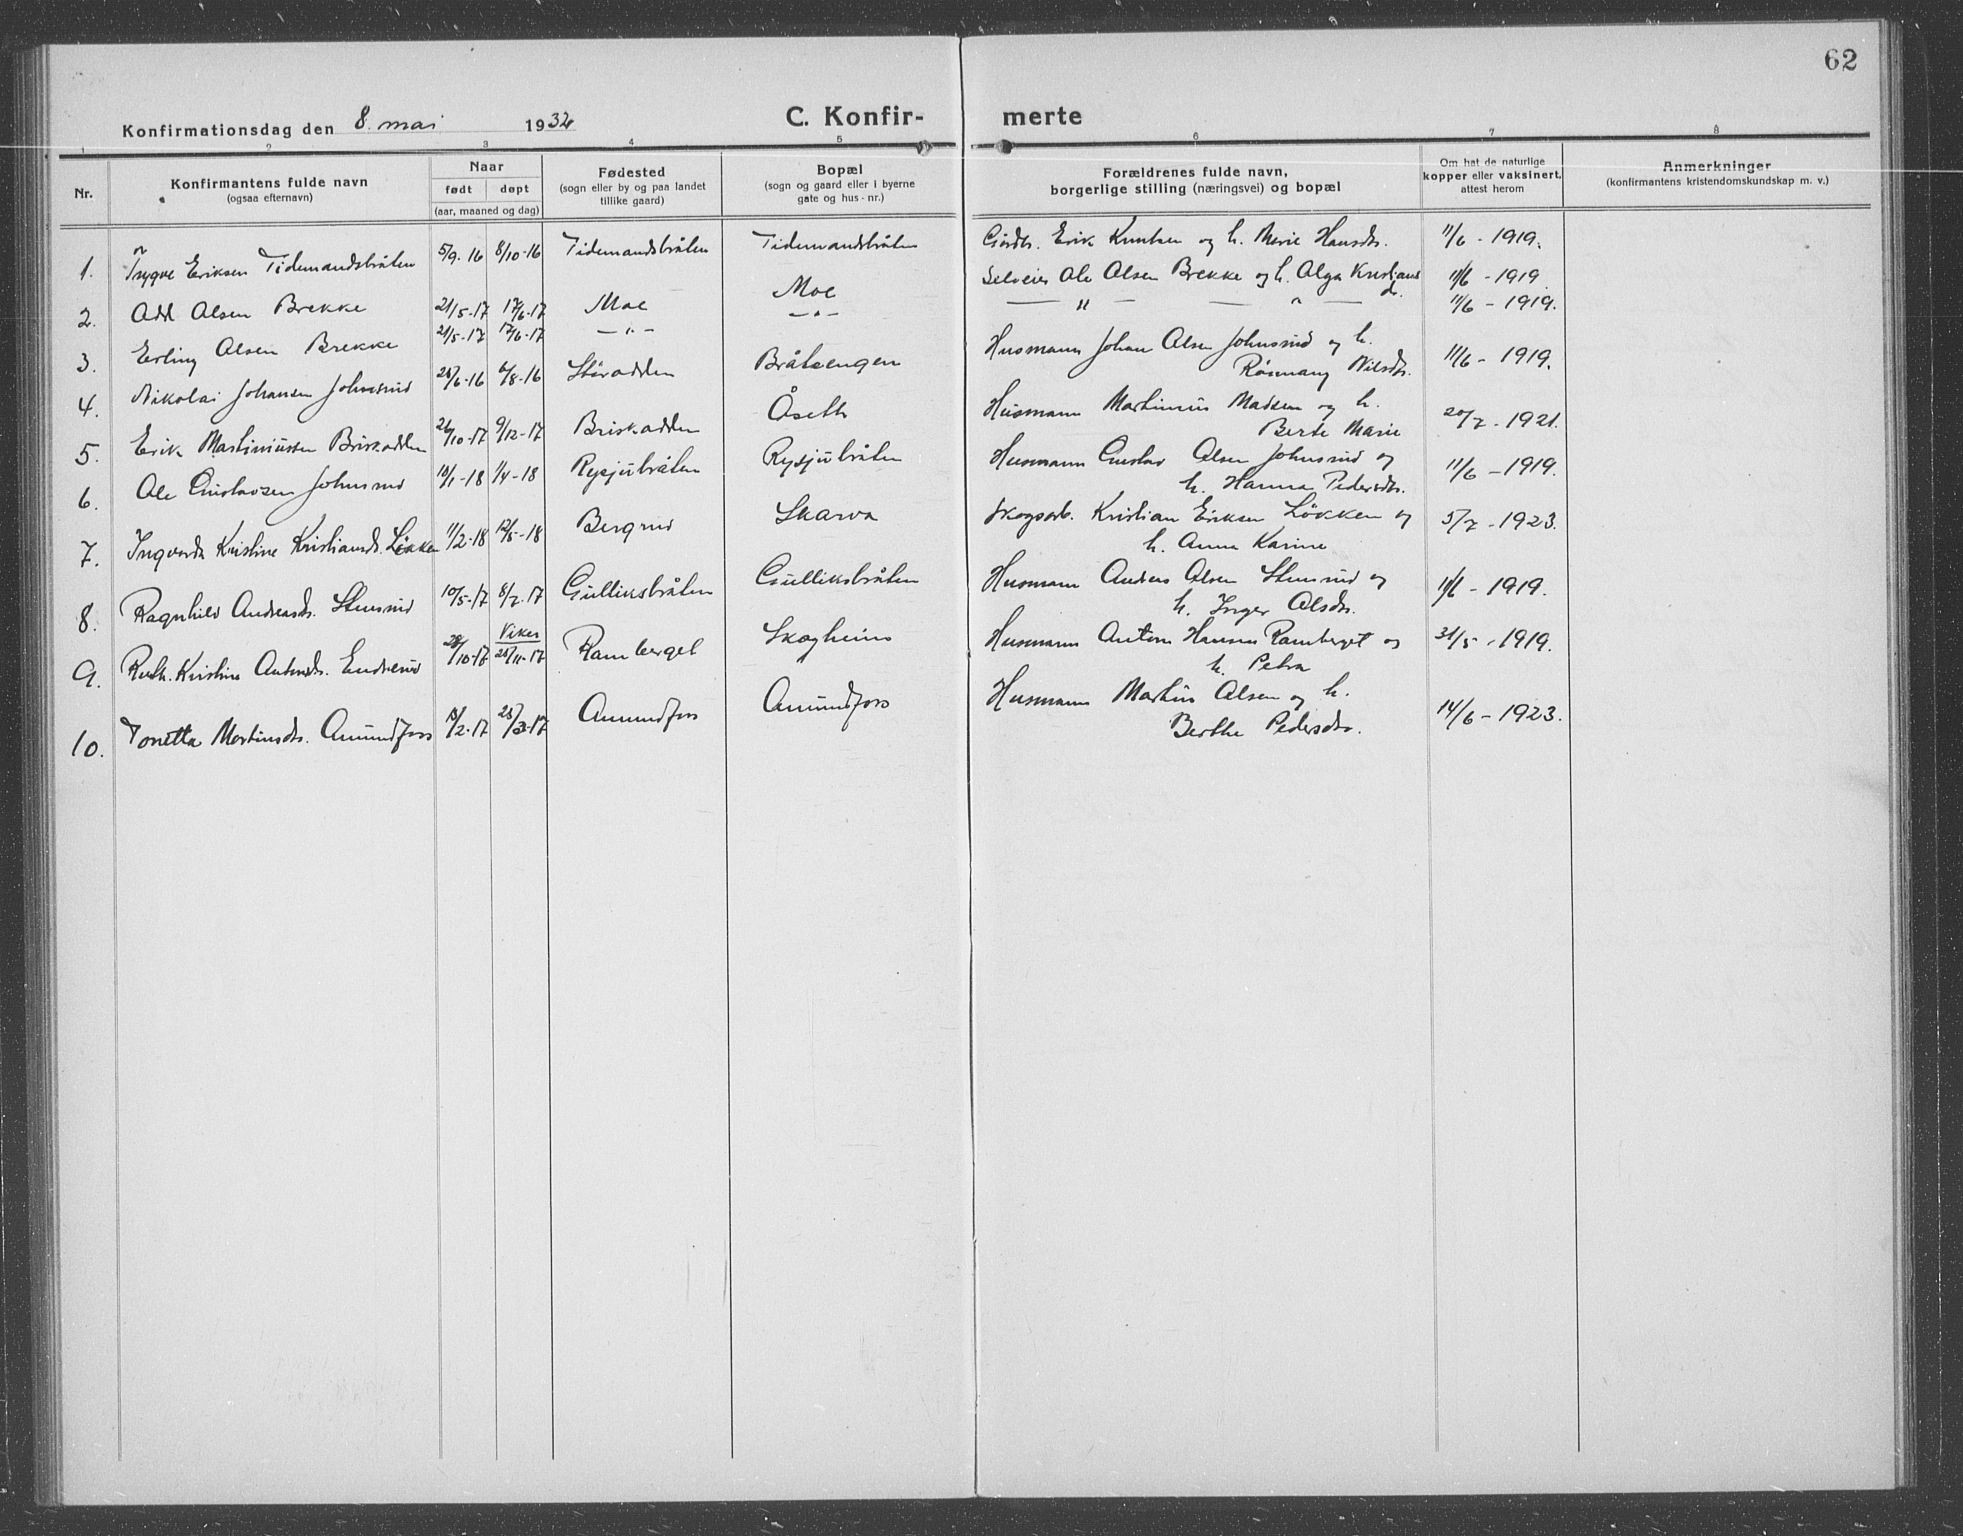 62
Konfirmationsdag den 8. mai 1932 C. Konfirmerte
1 2 3 4 5 6 7 8
Nr. Konfirmantens fulde navn (ogsaa efternavn) Naar født døpt (aar, maaned og dag) Fødested (sogn eller by og paa landet tillike gaard) Bopæl (sogn og gaard eller i byerne gate og hus-nr.) Forældrenes fulde navn, borgerlige stilling (næringsvei) og bopæl Om hat de naturlige kopper eller vaksinert, attest herom Anmerkninger (konfirmantens kristendomskundskap m. v.)
1. Trygve Eriksen Tidemandsbråten 5/9.16 8/10-16 Tidemandsbråten Tidemandsbråten Gårdbr. Erik Knutsen og h. Marie Hansdtr. 11/6 - 1919.
2. Odd Olsen Brekke 21/5-17 17/6-17 Moe Moe Selveier Ole Olsen Brekke og h. Olga Kristians d. 11/6 - 1919.
3. Erling Olsen Brekke 21/5-17 17/6-17 — " — — " — — " — — " — 11/6 - 1919.
4. Nikolai Johansen Johnsrud 28/6-16 6/8-16 Støvodden Bråtaengen Husmann Johan Olsen Johnsrud og h. Nilsdtr. 11/6 - 1919.
5. Erik Martiniussen Briskodden 26/10-17 9/12-17 Briskodden Åseth Husmann Martinius Madsen og h. Berte Marie 20/7 - 1921.
6. Ole Gustavsen Johnsrud 10/1-18 1/4-18 Rysjubråten Rysjubråten Husmann Gustav Olsen Johnsrud og h. Hanna Pedersdtr. 11/6 - 1919.
7. Ingvarda Kristine Kristiansd. Løkken 11/2-18 12/5-18 Bergrud Skarva Skogsarb. Kristian Eriksen Løkken og h. Anna Karine 5/7 - 1923.
8. Ragnhild Andreasd. Stensrud 10/5-17 8/7.17 Gulliksbråten Gulliksbråten Husmann Anders Olsen Stensrud og h. Inger Olsdtr. 11/6 - 1919.
9. Ruth Kristine Antonsd. Enderud 28/10-17 Viker 25/11-17 Ramberget Skogheim Husmann Anton Hansen Ramberget og h. Petra 31/5 - 1919.
10. Tonetta Martinsdtr. Amundfoss /2-17 25/3-17 Amundfoss Amundfoss Husmann Martin Olsen og h. Berthe Pedersdtr. 14/6 - 1923.